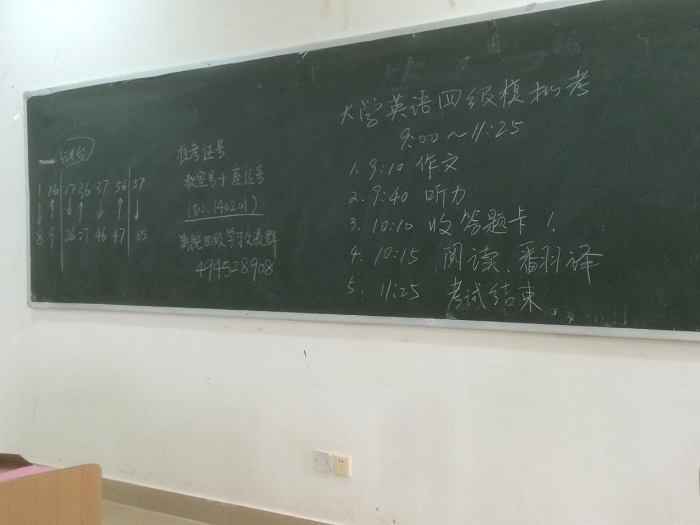 讲台
1 16 17 36 37 56 57
↓ ↑ ↓ ↑ ↓ ↑ ↓
8 9 26 27 46 47 65
准考证号
教室号+座位号
(如:140201)
四级学习交流群
494528908
大学英语四级模拟考
9:00~11:25
1. 9:10 作文
2. 9:40 听力
3. 10:10 收答题卡1
4. 10:15 阅读、翻译
5. 11:25 考试结束